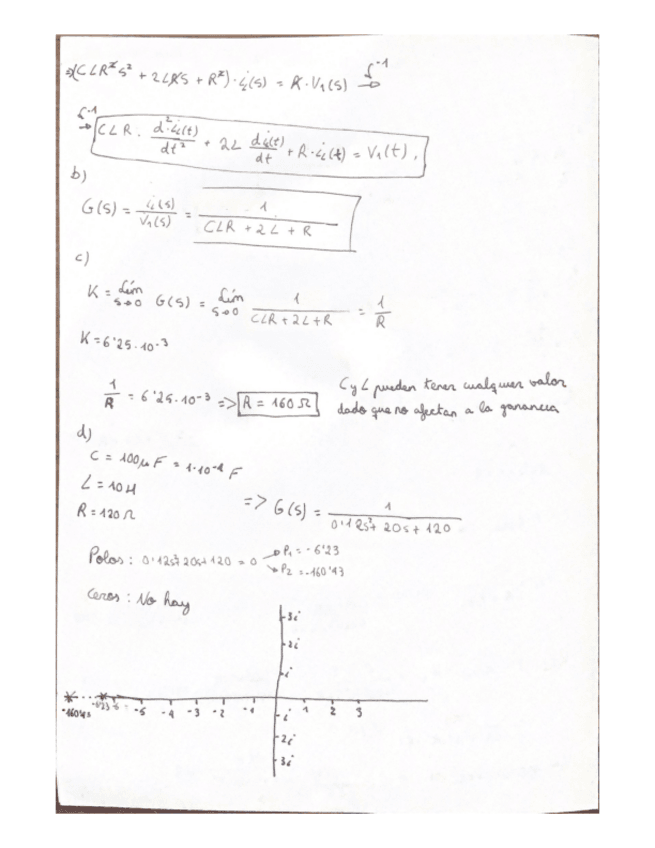 ⇒(CLR²s² + 2LRs + R²)·i_L(s) = R·V₁(s) →ℒ⁻¹
ℒ⁻¹→ CLR · d²i_L(t)/dt² + 2L di_L(t)/dt + R·i_L(t) = V₁(t).
b)
G(s) = i_L(s)/V₁(s) = 1/(CLR + 2L + R)
c)
K = Lím s→0 G(s) = Lím s→0 1/(CLR+2L+R) = 1/R
K=6'25·10⁻³
1/R = 6'25·10⁻³ => R = 160 Ω
C y L pueden tener cualquier valor
dado que no afectan a la ganancia
d)
C = 100μF = 1·10⁻⁴ F
L = 10H
R = 120 Ω
=> G(s) = 1/(0'12s²+ 20s + 120)
Polos : 0'12s²+20s+120 = 0 → P₁ = -6'23
→ P₂ = -160'43
Ceros : No hay
3i
2i
i
-160'43 -6'23 -6 -5 -4 -3 -2 -1 1 2 3
-i
-2i
3i